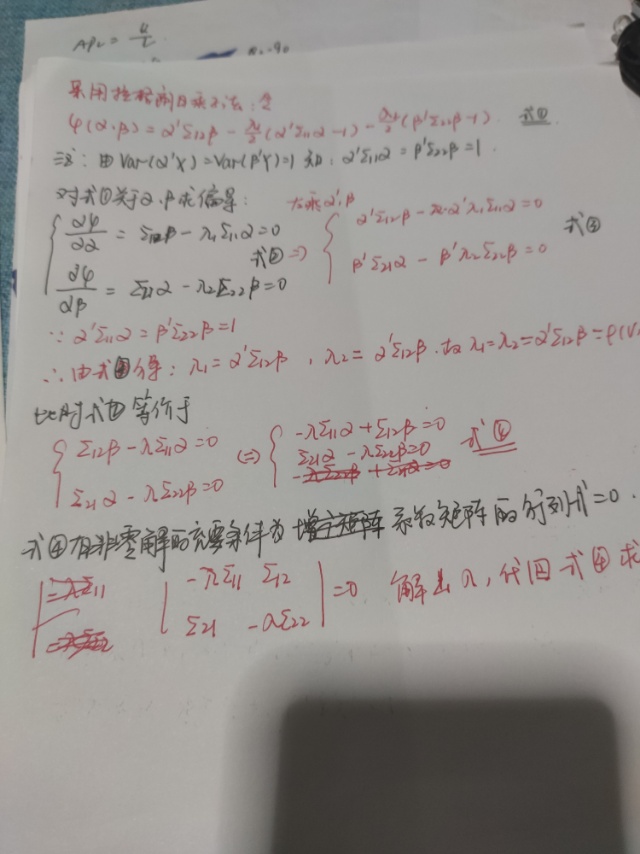 APL = U/L
采用拉格朗日乘子法:令
φ(α·β) = α'Σ12β - λ1/2(α'Σ11α-1) - λ2/2(β'Σ22β-1). 式①
注:由Var(α'X)=Var(β'Y)=1知:α'Σ11α = β'Σ22β=1.
对式①关于α.β求偏导: 左乘α',β'
{ ∂φ/∂α = Σ12β - λ1Σ11α=0 式② ⇒ { α'Σ12β - α'λ1Σ11α=0 式③
∂φ/∂β = Σ21α - λ2Σ22β=0 β'Σ21α - β'λ2Σ22β=0
∵ α'Σ11α = β'Σ22β=1
∴ 由式③得: λ1=α'Σ12β , λ2= α'Σ12β.故λ1=λ2=α'Σ12β=ρ(V,
此时式②等价于
{ Σ12β - λΣ11α=0 ⇔ { -λΣ11α+Σ12β=0 式④
Σ21α - λΣ22β=0 Σ21α - λΣ22β=0
式④有非零解的充要条件为 系数矩阵的行列式=0.
| -λΣ11 Σ12 | =0 解出λ,代回式④求
Σ21 -λΣ22